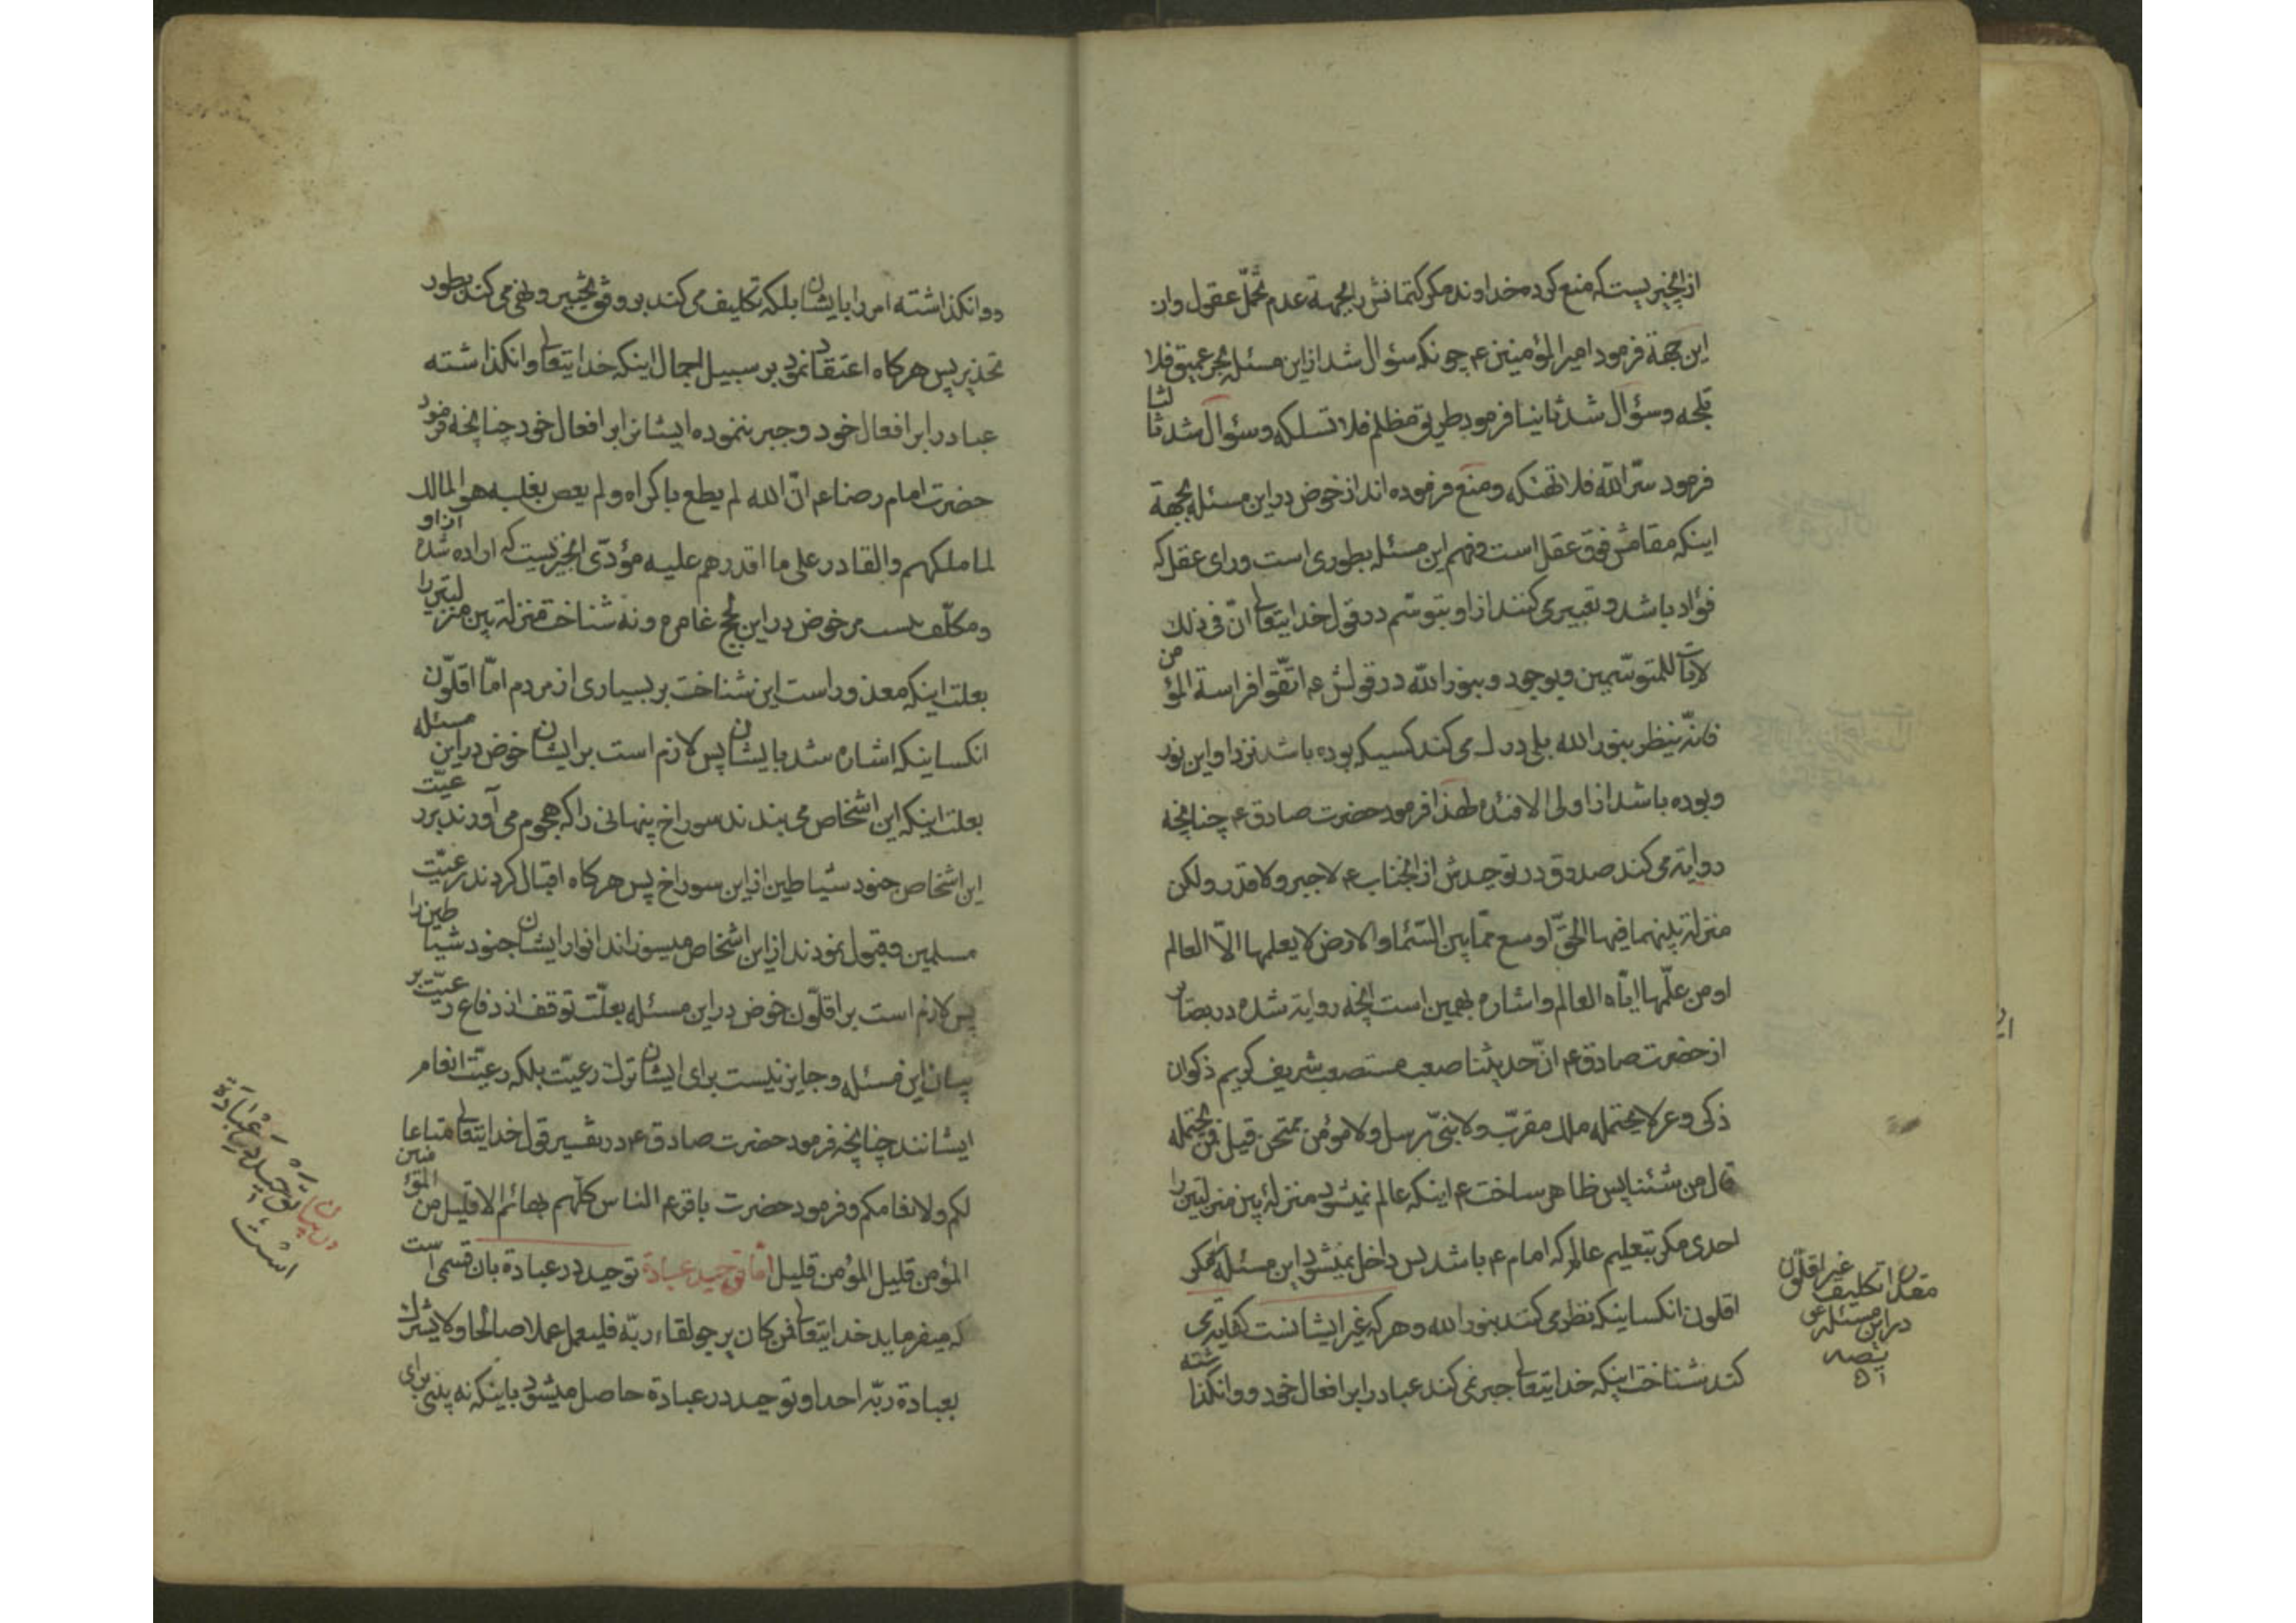 از انچیزیست که منع کرده خداوند مکر کتمانش را بجهة عدم تحمّل عقول و از
این جهة فرمود امیر المؤمنین ع چونکه سؤال شد از این مسئله بحر عمیق فلا
تلجه و سؤال شد ثانیا فرمود طریق مظلم فلا تسلکه و سؤال شد ثالثا
فرمود سرّ الله فلا تهتکه و منع فرموده اند از خوض در این مسئله بجهة
اینکه مقامش فوق عقل است و فهم این مسئله بطوری است ورای عقل که
فؤاد باشد و تعبیر می کنند از او بتوسّم در قول خدایتعالی انّ فی ذلک
لایات للمتوسّمین و بوجود و بنور الله در قولش ع اتّقوا فراسة المؤمن
فانّه ینظر بنور الله بلی درک می کند کسیکه بوده باشد نزد او این نور
و بوده باشد از اولی الافئده لهذا فرمود حضرت صادق ع چنانچه
روایة می کند صدوق در توحیدش از انجناب ع لا جبر و لا قدر ولکن
منزلة بینهما فیها الحقّ اوسع ممّا بین السّماء و الارض لا یعلمها الّا العالم
او من علّمها ایّاه العالم و اشاره بهمین است انچه روایة شده در بصائر
از حضرت صادق ع انّ حدیثنا صعب مستصعب شریف کریم ذکوان
ذکی وعر لا یحتمله ملک مقرّب و لا نبیّ مرسل و لا مؤمن ممتحن قیل فمن یحتمله
قال من شئنا پس ظاهر ساخت ع اینکه عالم نمیشود منزلة بین منزلتین را
احدی مکر بتعلیم عالم که امام ع باشد پس داخل نمیشود این مسئله را مکر
اقلون انکسانیکه نظر می کنند بنور الله و هر که غیر ایشانست کفایة می
کند شناخت اینکه خدایتعالی جبر نمی کند عباد را بر افعال خود و وانکذاشته
مقدار تکلیف غیر اقلّون
در این مسئله
دوانکذاشته امر را بایشان بلکه تکلیف می کند بر وفق تخییر و نهی می کند بطور
تحذیر پس هرکاه اعتقاد نمود بر سبیل اجمال اینکه خدایتعالی وانکذاشته
عباد را بر افعال خود و جبر ننموده ایشانرا بر افعال خود چنانچه فرمود
حضرت امام رضا ع انّ الله لم یطع باکراه و لم یعص بغلبه هو المالک
لما ملکهم و القادر علی ما اقدرهم علیه مؤدّی انچیزیست که اراده شده از او
و مکلّف نیست مر خوض در این لجج غامره و نه شناخت منزلة بین منزلتین را
بعلت اینکه معذور است این شناخت بر بسیاری از مردم امّا اقلّون
انکسانیکه اشاره شد بایشان پس لازم است بر ایشان خوض در این مسئله
بعلت اینکه این اشخاص می بندند سوراخ پنهانی را که هجوم می آورند بر رعیّت
این اشخاص جنود شیاطین از این سوراخ پس هرکاه اقبال کردند رعیّت
مسلمین و قبول نمودند از این اشخاص میسوزاند انوار ایشان جنود شیاطین را
پس لازم است بر اقلّون خوض در این مسئله بعلّت توقف دفاع رعیّت بر
بیان این مسئله و جایز نیست برای ایشان ترک رعیّت بلکه رعیّت انعام
ایشانند چنانچه فرمود حضرت صادق ع در تفسیر قول خدایتعالی متاعا
لکم و لانعامکم و فرمود حضرت باقر ع الناس کلّهم بهائم الا قلیل من المؤمنین
المؤمن قلیل المؤمن قلیل امّا توحید عبادة توحید در عبادة بان قسمی است
که میفرماید خدایتعالی فمن کان یرجو لقاء ربّه فلیعمل عملا صالحا و لا یشرک
بعبادة ربّه احدا و توحید در عبادة حاصل میشود باینکه نه بینی برای
در بیان
توحید در عبادة
است